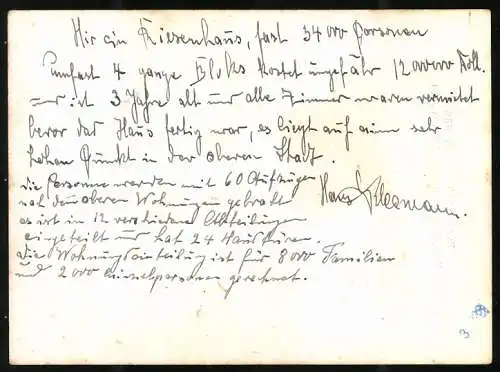 Hir ein Riesenhaus, fast 34000 Personen
umfast 4 ganze Bloks kostet ungefähr 12000000 Doll.
und ist 3 Jahre alt und alle Zimmer waren vermietet
bevor das Haus fertig war, es liegt auf einm sehr
hohen Punkt in der oberen Stadt.
die Personen werden mit 60 Aufzügen
nach den oberen Wohnungen gebracht
es ist in 12 verschiedene Abteilungen
eingeteilt und hat 24 Haustüren.
die Wohnungseinteilung ist für 8000 Familien
und 2000 Einzelpersonen gerechnet.
Hans Kleemann.
3